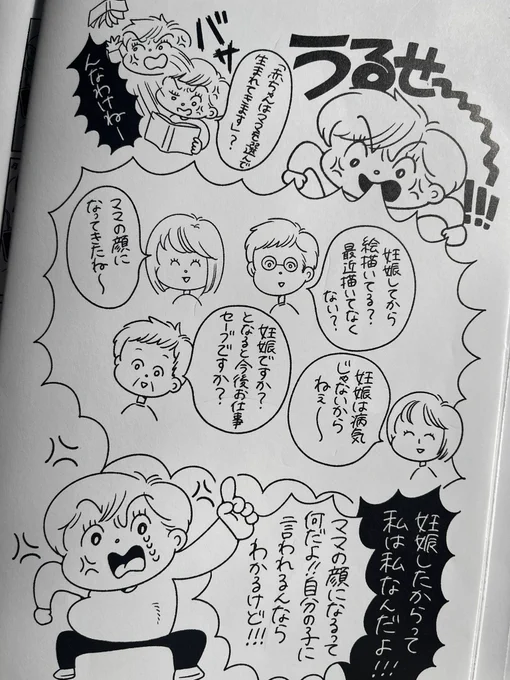 うるせ〜〜〜〜!!!
バサ
「赤ちゃんはママを選んで
生まれてきます」?
んなわけねー
妊娠してから
絵描いてる?
最近描いてなく
ない?
ママの顔に
なってきたね〜
妊娠は病気
じゃないから
ねぇ〜〜
妊娠ですか?
となると今後お仕事
セーブですか?
妊娠したからって
私は私なんだよ!!!
ママの顔になるって
何だよ!!自分の子に
言われるんなら
わかるけど!!!